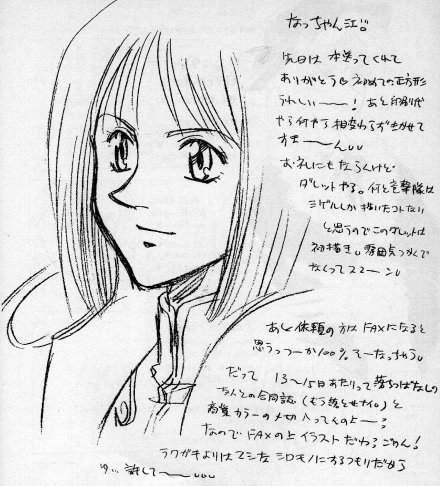 なっちゃん江
先日は 本送ってくれて
ありがとう 初めての正方形
うれしいー! あと印刷代
やら何やら 相変わらずまかせて
すまーーん
お礼にもならんけど
ダレットやる。何と 隊は
ミゲルしか描いたコトない
と思うのでこのダレットは
初描き。雰囲気つかんで
なくってスマーン
あと依頼の方は FAXになると
思うっつーか100% そーなっちゃう。
だって 13〜15日あたりって 落ちっぱなしの
なんとの合同誌(もう落とせない)と
カラーの〆切 入ってんのよー
なので FAXの上イラストだわ ごめん!
ラクガキよりはマシな シロモノにするつもりだから
許してーー